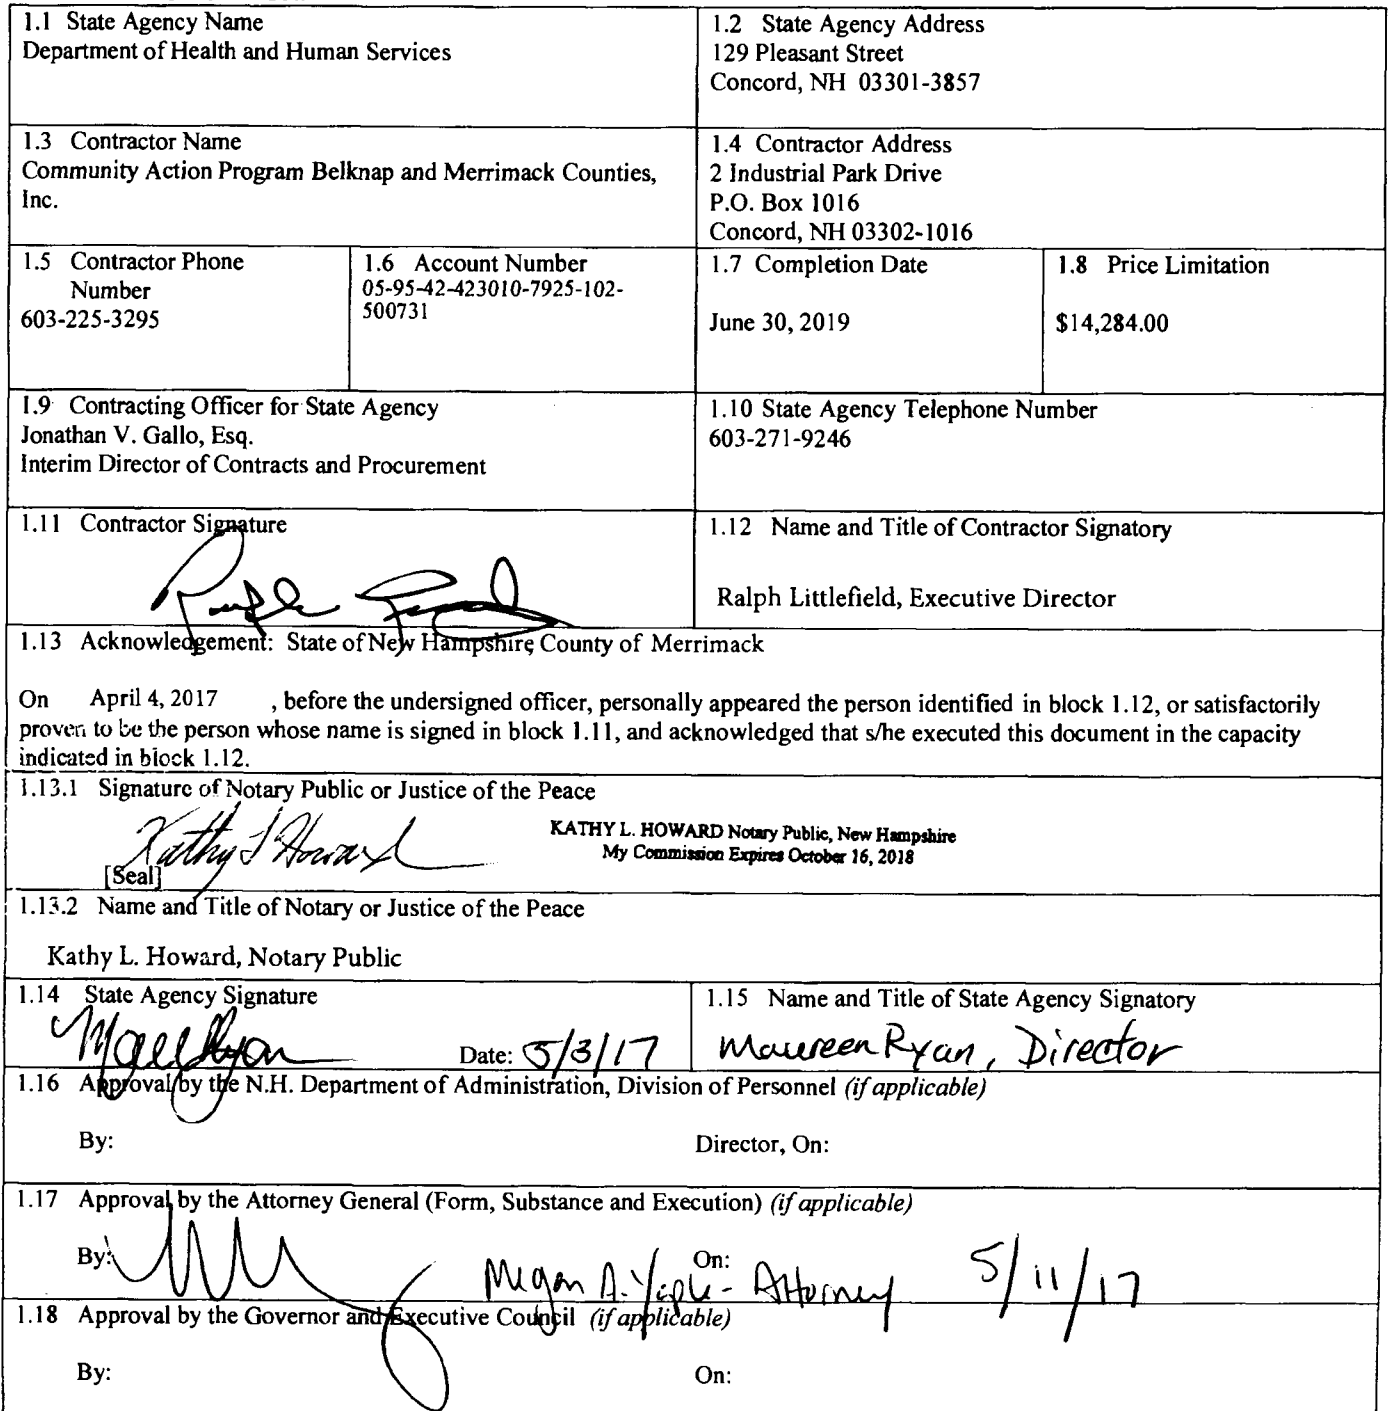 1.1 State Agency Name
Department of Health and Human Services
1.2 State Agency Address
129 Pleasant Street
Concord, NH 03301-3857
1.3 Contractor Name
Community Action Program Belknap and Merrimack Counties,
Inc.
1.4 Contractor Address
2 Industrial Park Drive
P.O. Box 1016
Concord, NH 03302-1016
1.5 Contractor Phone
Number
603-225-3295
1.6 Account Number
05-95-42-423010-7925-102-
500731
1.7 Completion Date
June 30, 2019
1.8 Price Limitation
$14,284.00
1.9 Contracting Officer for State Agency
Jonathan V. Gallo, Esq.
Interim Director of Contracts and Procurement
1.10 State Agency Telephone Number
603-271-9246
1.11 Contractor Signature
1.12 Name and Title of Contractor Signatory
Ralph Littlefield, Executive Director
1.13 Acknowledgement: State of New Hampshire, County of Merrimack
On April 4, 2017 , before the undersigned officer, personally appeared the person identified in block 1.12, or satisfactorily
proven to be the person whose name is signed in block 1.11, and acknowledged that s/he executed this document in the capacity
indicated in block 1.12.
1.13.1 Signature of Notary Public or Justice of the Peace
Kathy L Howard
KATHY L. HOWARD Notary Public, New Hampshire
My Commission Expires October 16, 2018
[Seal]
1.13.2 Name and Title of Notary or Justice of the Peace
Kathy L. Howard, Notary Public
1.14 State Agency Signature
Date: 5/3/17
1.15 Name and Title of State Agency Signatory
Maureen Ryan, Director
1.16 Approval by the N.H. Department of Administration, Division of Personnel (if applicable)
By: Director, On:
1.17 Approval by the Attorney General (Form, Substance and Execution) (if applicable)
By: On:
Megan A. - Attorney 5/11/17
1.18 Approval by the Governor and Executive Council (if applicable)
By: On: